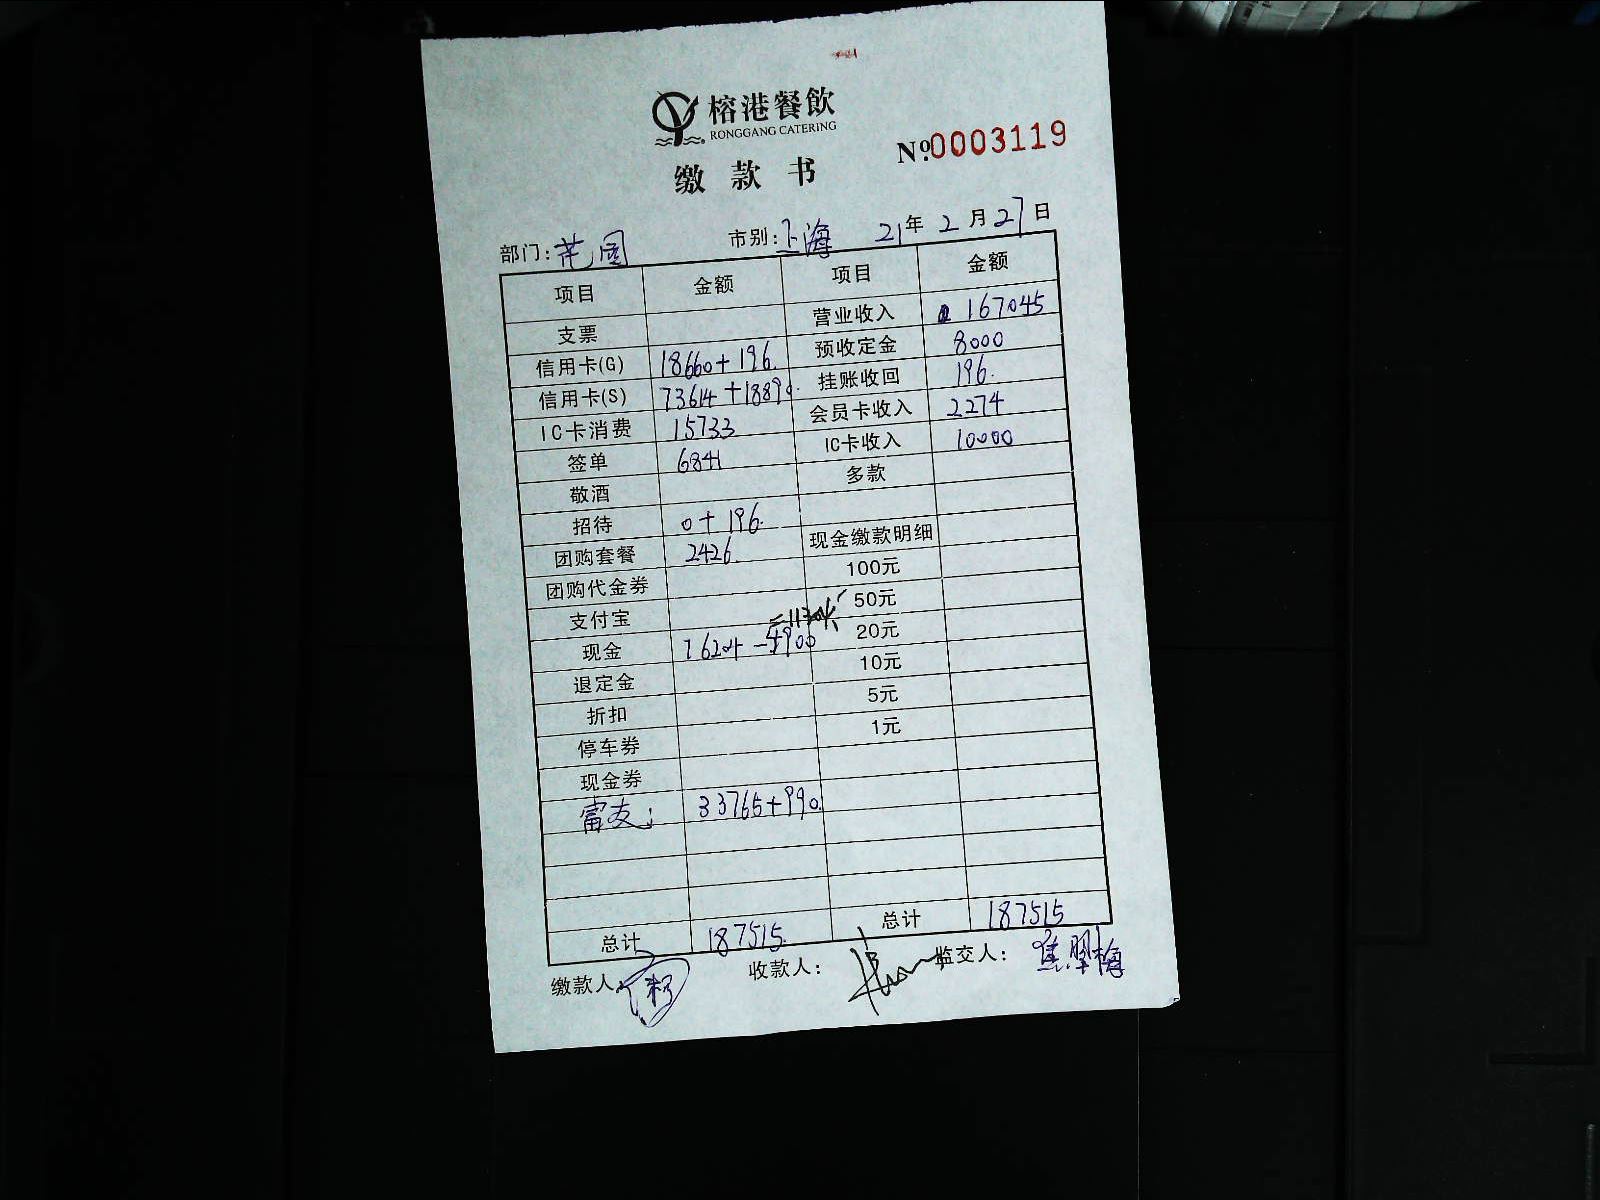 榕港餐飲
RONGGANG CATERING
缴款书
№0003119
部门:花园 市别:上海 21年2月27日
项目 金额 项目 金额
支票 营业收入 167045
信用卡(G) 18660+196. 预收定金 8000
信用卡(S) 73614+18890. 挂账收回 196.
IC卡消费 15733 会员卡收入 2274
签单 6841 IC卡收入 10000
敬酒 多款
招待 0+196.
团购套餐 2426. 现金缴款明细
团购代金券 100元
支付宝 50元
现金 16204-4900 =11304 20元
退定金 10元
折扣 5元
停车券 1元
现金券
富友: 33765+990.
总计 187515. 总计 187515
缴款人 收款人: 监交人: